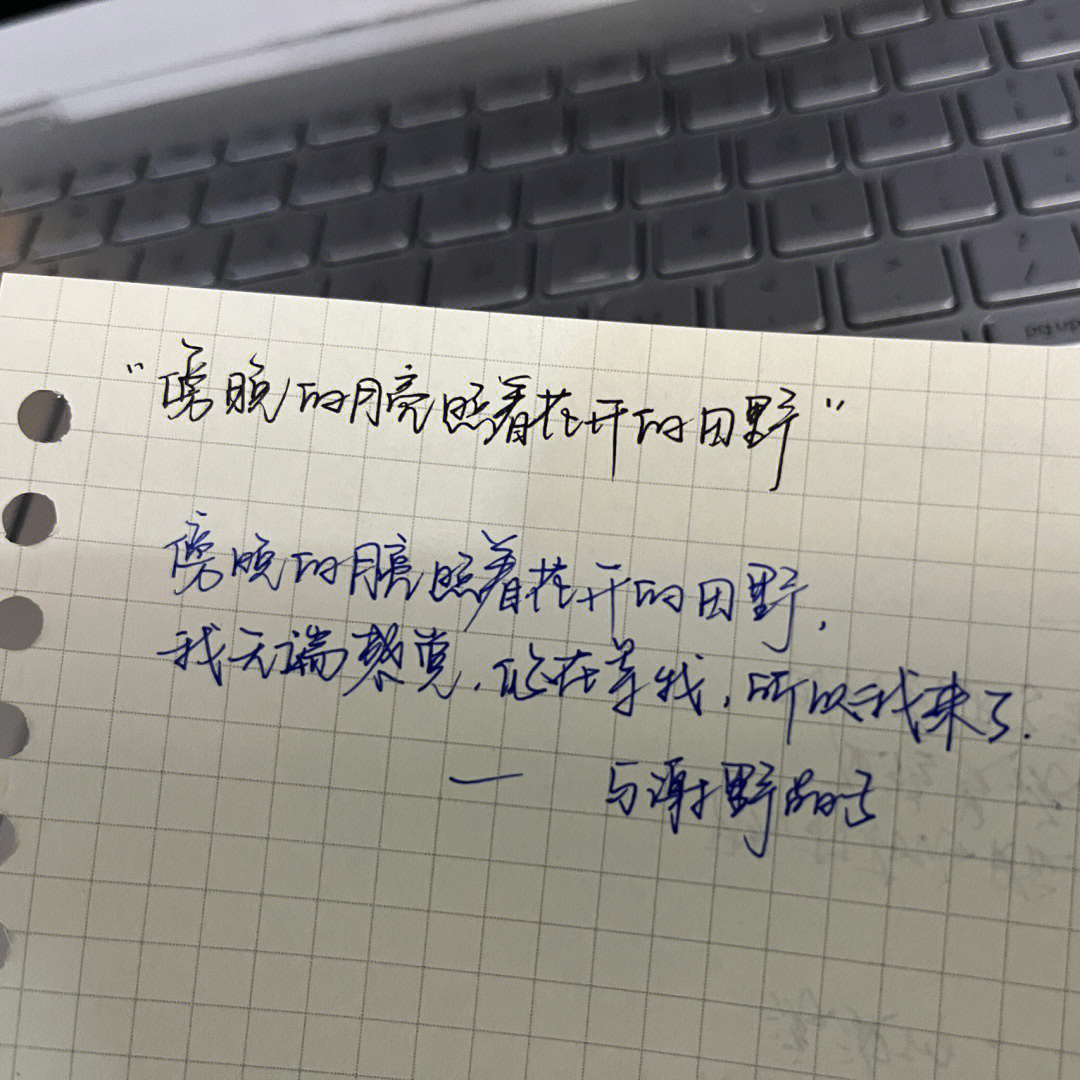 “傍晚的月亮照着花开的田野”
傍晚的月亮照着花开的田野,
我无端感觉,你在等我,所以我来了.
— 与谢野晶子